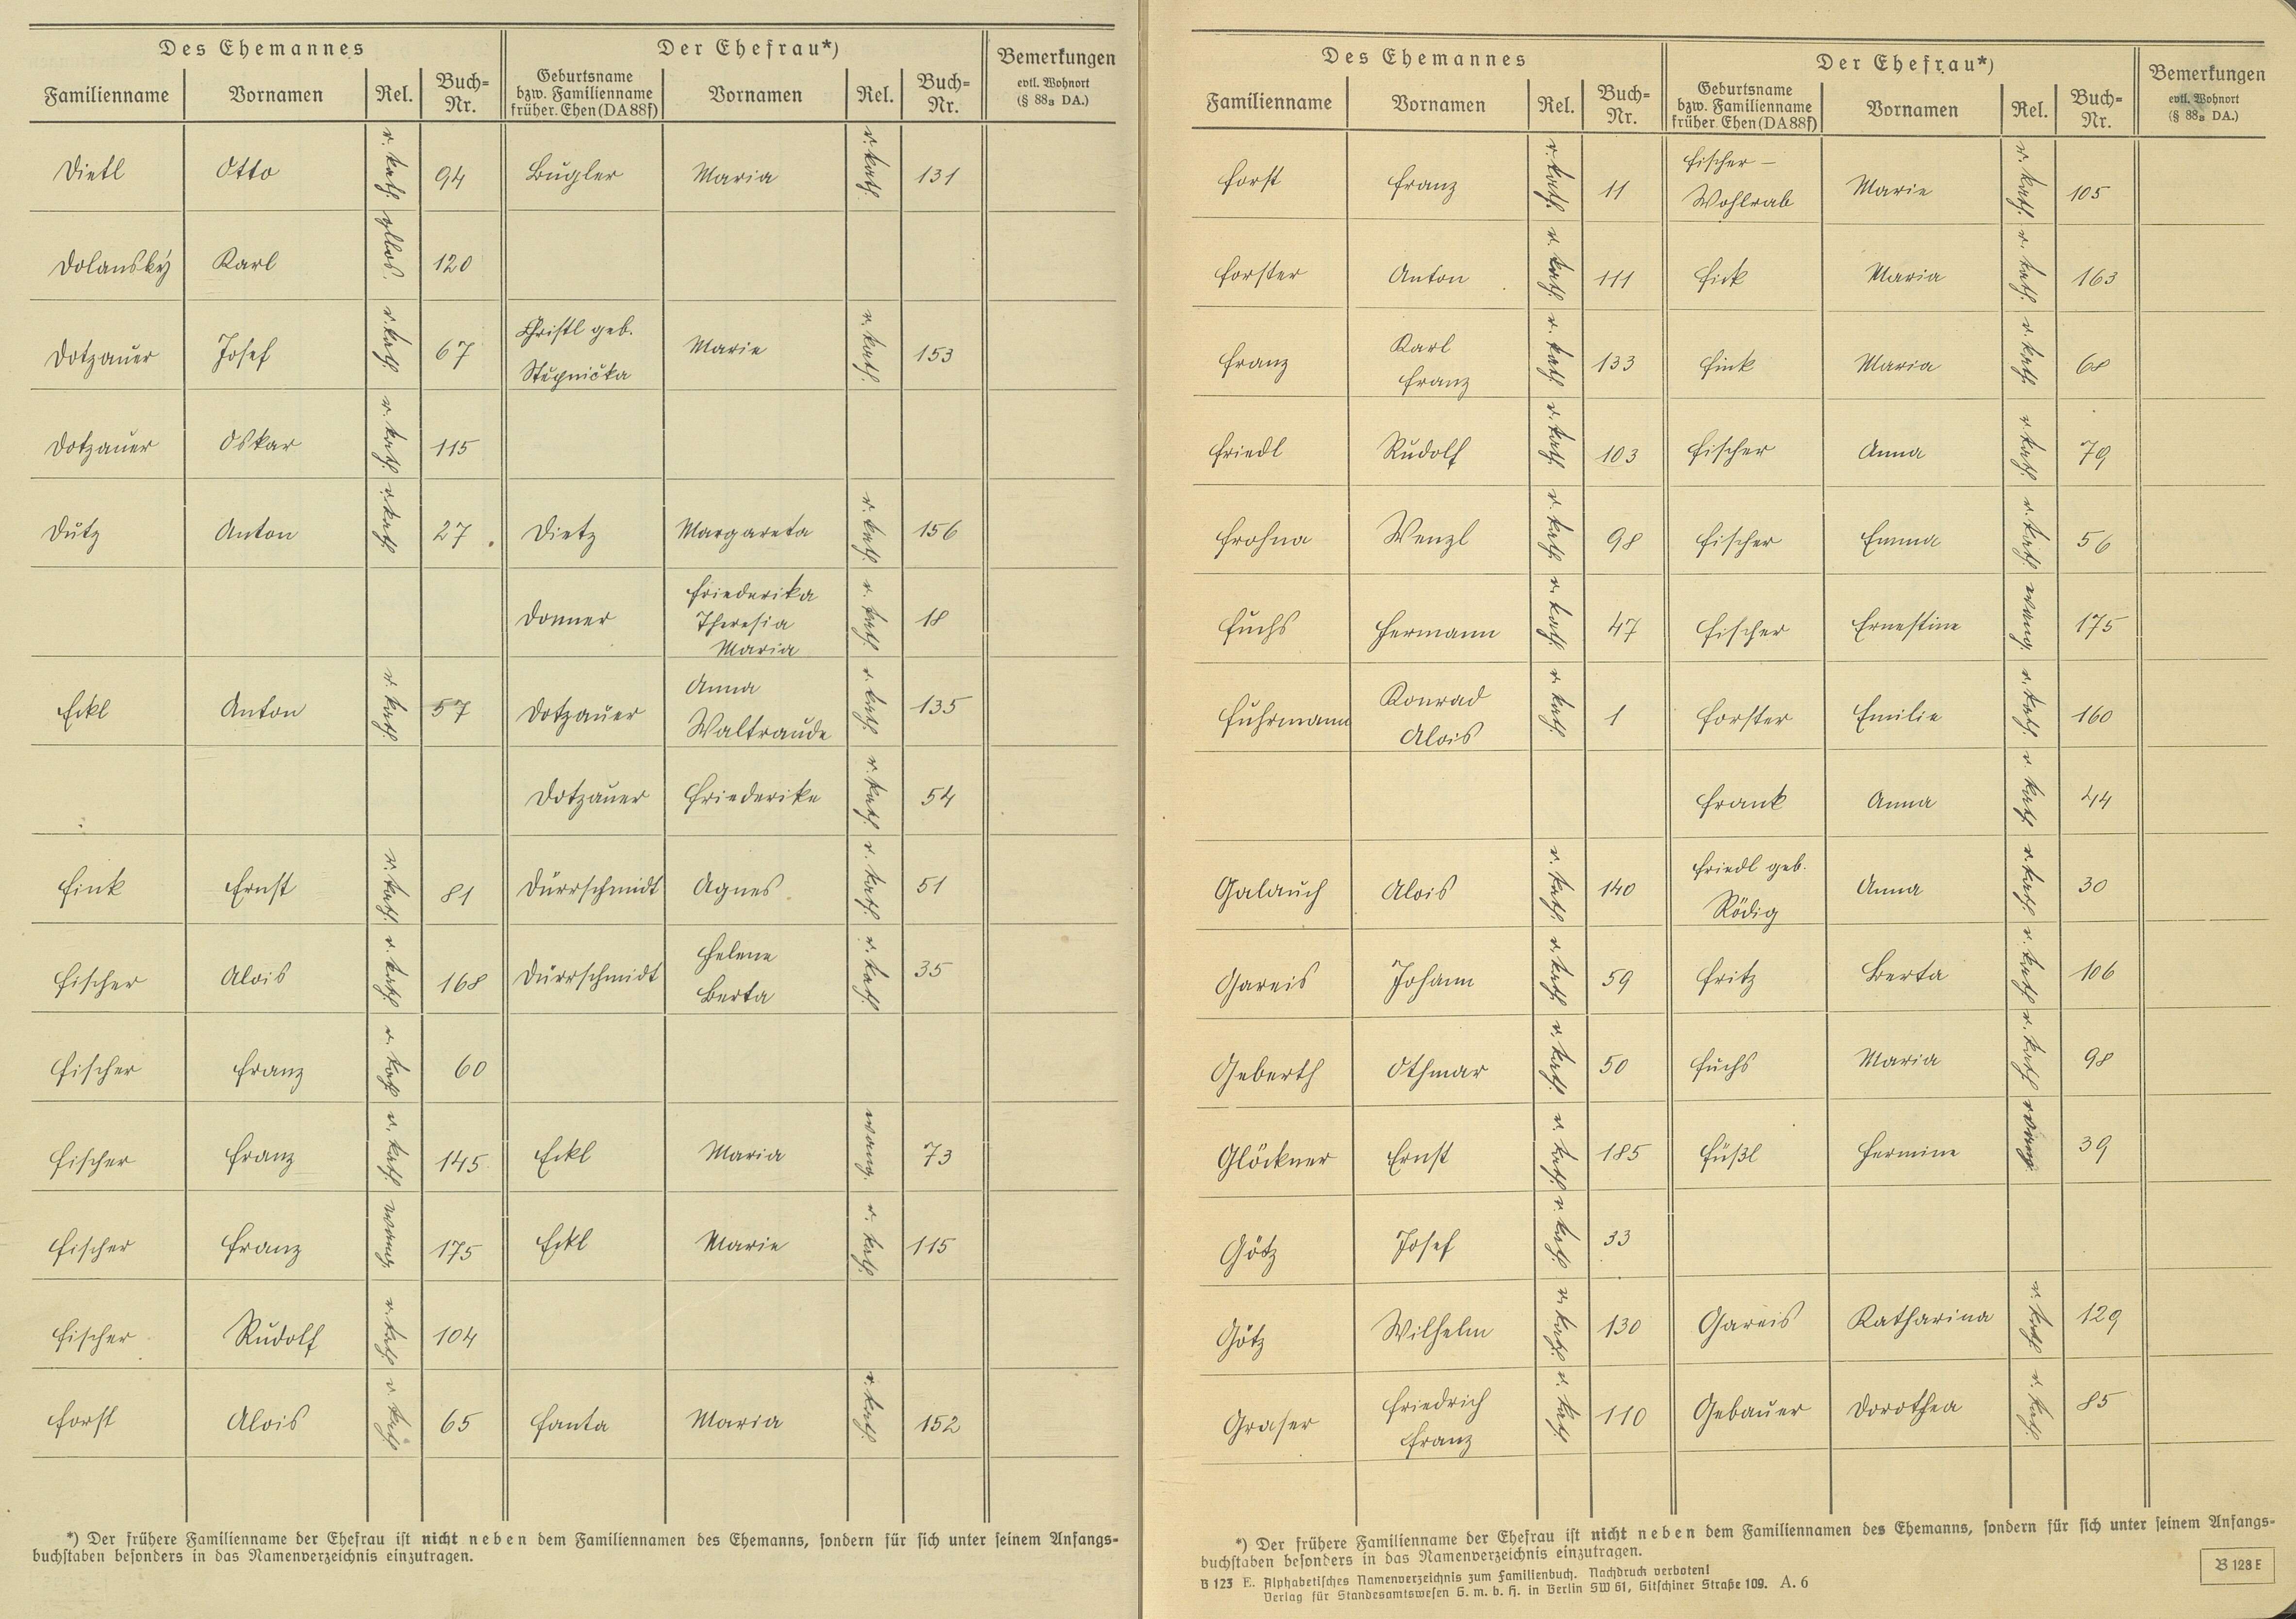 Des Ehemannes Der Ehefrau*) Bemerkungen
evtl. Wohnort
(§ 88a DA.)
Familienname Vornamen Rel. Buch-Nr. Geburtsname bzw. Familienname früher. Ehen (DA 88f) Vornamen Rel. Buch-Nr.
Dietl Otto r. kath. 94 Bugler Maria r. kath. 131
Dolanský Karl glbos. 120
Dotzauer Josef r. kath. 67 Christl geb. Marie r. kath. 153
Stěpnička
Dotzauer Oskar r. kath. 115
Dutz Anton r. kath. 27 Dietz Margareta r. kath. 156
Donner Friederika r. kath. 18
Theresia
Maria
Eckl Anton r. kath. 57 Dotzauer Anna r. kath. 135
Waltraude
Dotzauer Friederike r. kath. 54
Fink Ernst r. kath. 81 Dürrschmidt Agnes r. kath. 51
Fischer Alois r. kath. 168 Dürrschmidt Helene r. kath. 35
Berta
Fischer Franz r. kath. 60
Fischer Franz r. kath. 145 Eckl Maria evang. 73
Fischer Franz evang. 175 Eckl Marie r. kath. 115
Fischer Rudolf r. kath. 104
Forst Alois r. kath. 65 Fanta Maria r. kath. 152
*) Der frühere Familienname der Ehefrau ist nicht neben dem Familiennamen des Ehemanns, sondern für sich unter seinem Anfangs-
buchstaben besonders in das Namenverzeichnis einzutragen.
Des Ehemannes Der Ehefrau*) Bemerkungen
evtl. Wohnort
(§ 88a DA.)
Familienname Vornamen Rel. Buch-Nr. Geburtsname bzw. Familienname früher. Ehen (DA 88f) Vornamen Rel. Buch-Nr.
Forst Franz r. kath. 11 Fischer – Marie r. kath. 105
Wohlrab
Forster Anton r. kath. 111 Fick Maria r. kath. 163
Franz Karl r. kath. 133 Fink Maria r. kath. 68
Franz
Friedl Rudolf r. kath. 103 Fischer Anna r. kath. 79
Frohna Wenzl r. kath. 98 Fischer Emma r. kath. 56
Fuchs Hermann r. kath. 47 Fischer Ernestine evang. 175
Fuhrmann Konrad r. kath. 1 Forster Emilie r. kath. 160
Alois
Frank Anna r. kath. 44
Galauch Alois r. kath. 140 Friedl geb. Anna r. kath. 30
Rödig
Gareis Johann r. kath. 59 Fritz Berta r. kath. 106
Geberth Othmar r. kath. 50 Fuchs Maria r. kath. 98
Glöckner Ernst r. kath. 185 Füßl Hermine evang. 39
Götz Josef r. kath. 33
Götz Wilhelm r. kath. 130 Gareis Katharina r. kath. 129
Graser Friedrich r. kath. 110 Gebauer Dorothea r. kath. 85
Franz
*) Der frühere Familienname der Ehefrau ist nicht neben dem Familiennamen des Ehemanns, sondern für sich unter seinem Anfangs-
buchstaben besonders in das Namenverzeichnis einzutragen.
B 123 E. Alphabetisches Namenverzeichnis zum Familienbuch. Nachdruck verboten!
Verlag für Standesamtswesen G. m. b. H. in Berlin SW 61, Gitschiner Straße 109. A. 6
B 123 E